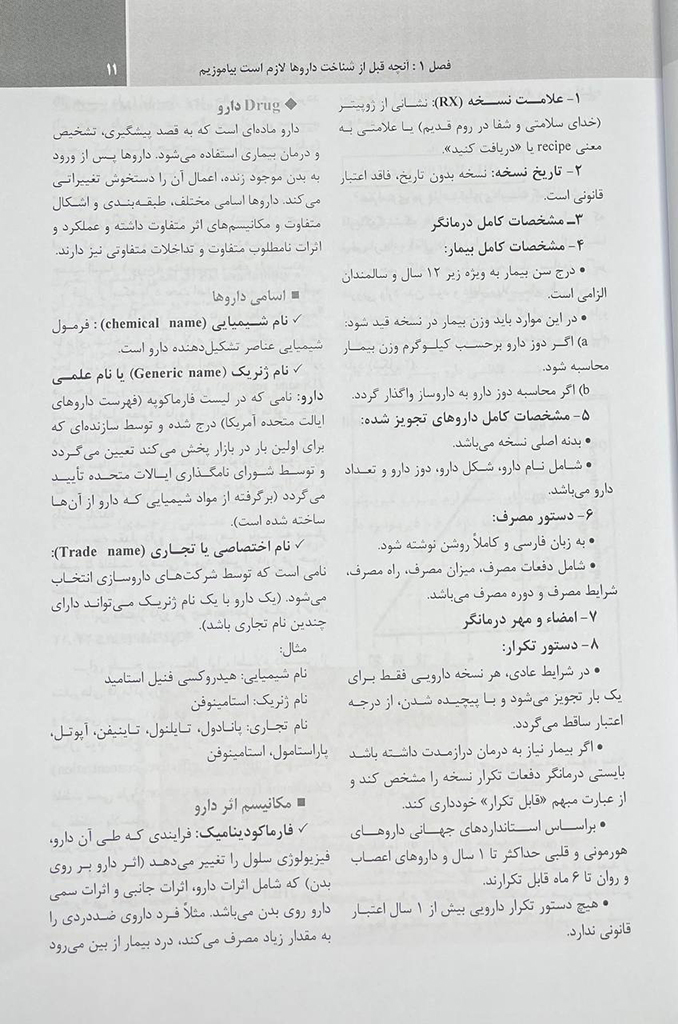 فصل ۱ : آنچه قبل از شناخت داروها لازم است بیاموزیم
۱۱
۱- علامت نسخه (RX): نشانی از ژوپیتر
(خدای سلامتی و شفا در روم قدیم) یا علامتی به
معنی recipe یا «دریافت کنید».
۲- تاریخ نسخه: نسخه بدون تاریخ، فاقد اعتبار
قانونی است.
۳- مشخصات کامل درمانگر
۴- مشخصات کامل بیمار:
• درج سن بیمار به ویژه زیر ۱۲ سال و سالمندان
الزامی است.
• در این موارد باید وزن بیمار در نسخه قید شود:
a) اگر دوز دارو برحسب کیلوگرم وزن بیمار
محاسبه شود.
b) اگر محاسبه دوز دارو به داروساز واگذار گردد.
۵- مشخصات کامل داروهای تجویز شده:
• بدنه اصلی نسخه می‌باشد.
• شامل نام دارو، شکل دارو، دوز دارو و تعداد
دارو می‌باشد.
۶- دستور مصرف:
• به زبان فارسی و کاملاً روشن نوشته شود.
• شامل دفعات مصرف، میزان مصرف، راه مصرف،
شرایط مصرف و دوره مصرف می‌باشد.
۷- امضاء و مهر درمانگر
۸- دستور تکرار:
• در شرایط عادی، هر نسخه دارویی فقط برای
یک بار تجویز می‌شود و با پیچیده شدن، از درجه
اعتبار ساقط می‌گردد.
• اگر بیمار نیاز به درمان درازمدت داشته باشد
بایستی درمانگر دفعات تکرار نسخه را مشخص کند و
از عبارت مبهم «قابل تکرار» خودداری کند.
• براساس استانداردهای جهانی داروهای
هورمونی و قلبی حداکثر تا ۱ سال و داروهای اعصاب
و روان تا ۶ ماه قابل تکرارند.
• هیچ دستور تکرار دارویی بیش از ۱ سال اعتبار
قانونی ندارد.
◆ Drug دارو
دارو ماده‌ای است که به قصد پیشگیری، تشخیص
و درمان بیماری استفاده می‌شود. داروها پس از ورود
به بدن موجود زنده، اعمال آن را دستخوش تغییراتی
می‌کند. داروها اسامی مختلف، طبقه‌بندی و اشکال
متفاوت و مکانیسم‌های اثر متفاوت داشته و عملکرد و
اثرات نامطلوب متفاوت و تداخلات متفاوتی نیز دارند.
■ اسامی داروها
✓ نام شیمیایی (chemical name) : فرمول
شیمیایی عناصر تشکیل‌دهنده دارو است.
✓ نام ژنریک (Generic name) یا نام علمی
دارو: نامی که در لیست فارماکوپه (فهرست داروهای
ایالت متحده آمریکا) درج شده و توسط سازنده‌ای که
برای اولین بار در بازار پخش می‌کند تعیین می‌گردد
و توسط شورای نامگذاری ایالات متحده تأیید
می‌گردد (برگرفته از مواد شیمیایی که دارو از آن‌ها
ساخته شده است).
✓ نام اختصاصی یا تجاری (Trade name):
نامی است که توسط شرکت‌های داروسازی انتخاب
می‌شود. (یک دارو با یک نام ژنریک می‌تواند دارای
چندین نام تجاری باشد).
مثال:
نام شیمیایی: هیدروکسی فنیل استامید
نام ژنریک: استامینوفن
نام تجاری: پانادول، تایلنول، تاینیفن، آپوتل،
پاراستامول، استامینوفن
■ مکانیسم اثر دارو
✓ فارماکودینامیک: فرایندی که طی آن دارو،
فیزیولوژی سلول را تغییر می‌دهد (اثر دارو بر روی
بدن) که شامل اثرات دارو، اثرات جانبی و اثرات سمی
دارو روی بدن می‌باشد. مثلاً فرد داروی ضددردی را
به مقدار زیاد مصرف می‌کند، درد بیمار از بین می‌رود